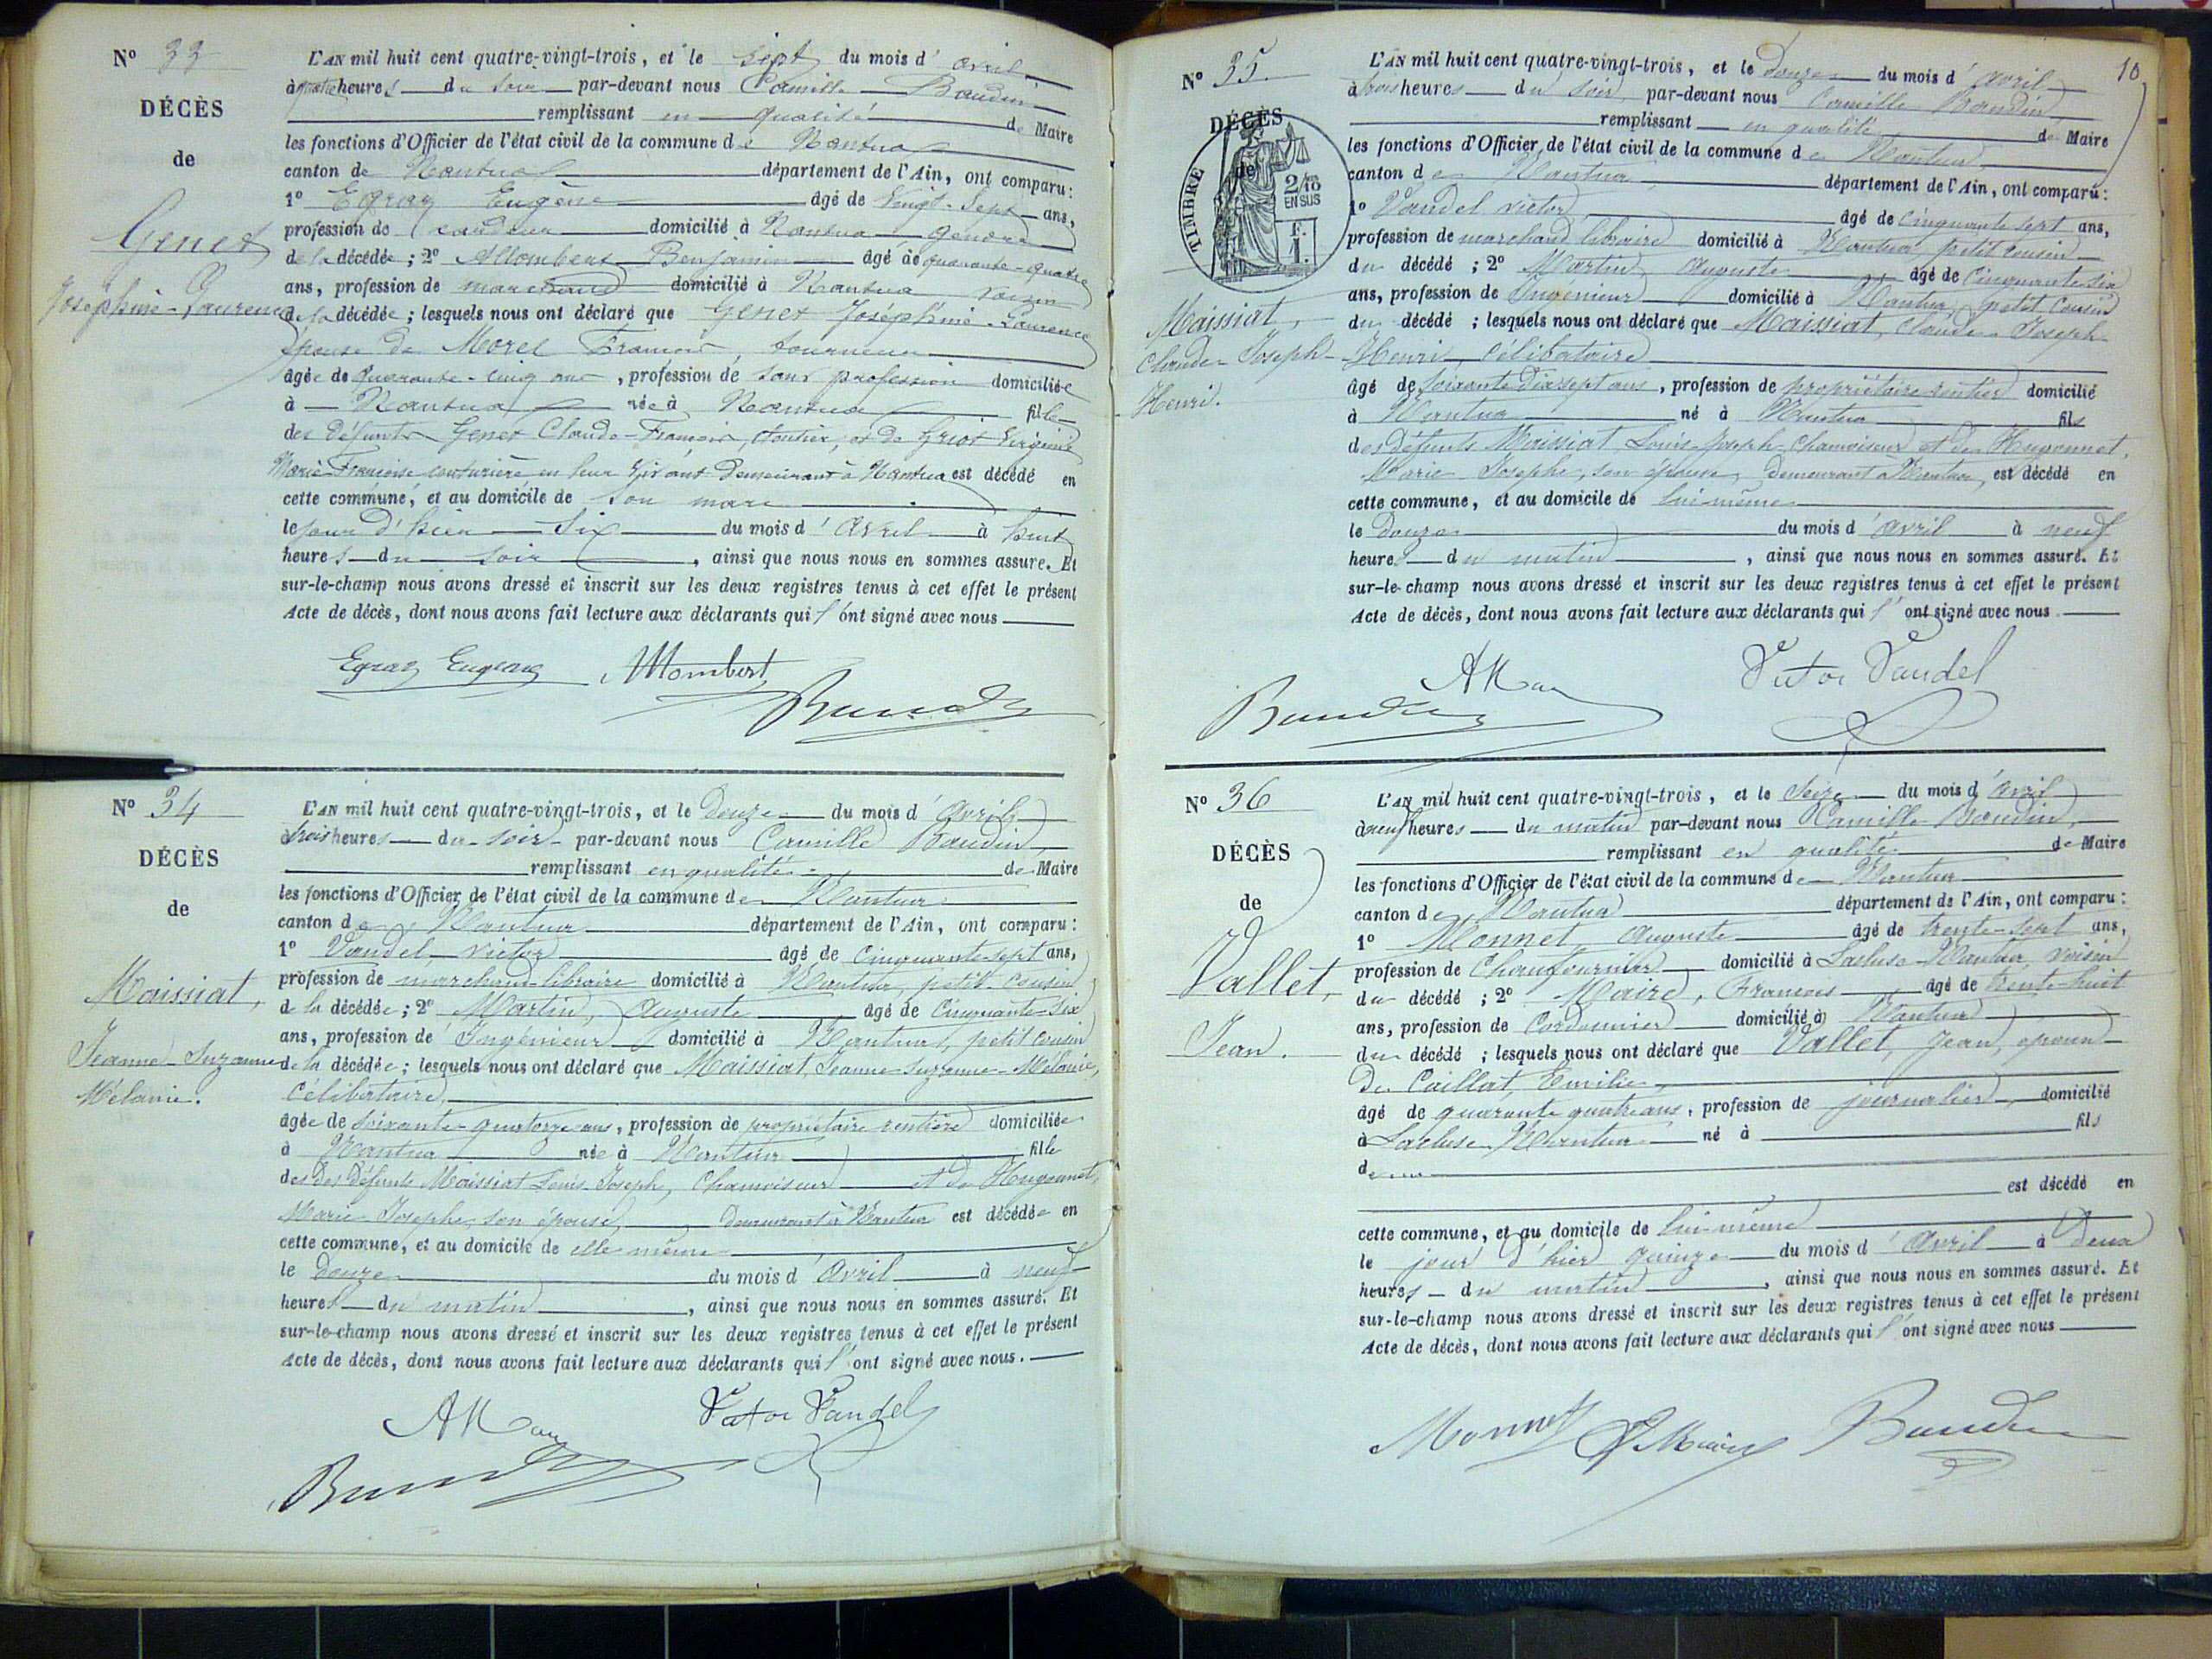 N° 33
DÉCÈS
de
Genet
Joséphine-Laurence
L'AN mil huit cent quatre-vingt-trois, et le sept du mois d'avril
à quatre heures du soir par-devant nous Camille Baudin
remplissant en qualité de Maire
les fonctions d'Officier de l'état civil de la commune de Nantua
canton de Nantua département de l'Ain, ont comparu :
1° Egraz Eugène âgé de Vingt-Sept ans,
profession de domicilié à Nantua gendre
de la décédée ; 2° Allombert Benjamin âgé de quarante-quatre
ans, profession de marchand domicilié à Nantua voisin
de la décédée ; lesquels nous ont déclaré que Genet Joséphine-Laurence
épouse de Morel François, tourneur
âgée de quarante-cinq ans, profession de sans profession domiciliée
à Nantua née à Nantua fille
des défunts Genet Claude-François, et de Griot Virginie
Marie Françoise couturière en leur vivant demeurant à Nantua est décédé en
cette commune, et au domicile de son mari
le jour d'hier Six du mois d'Avril à huit
heures du soir, ainsi que nous nous en sommes assuré. Et
sur-le-champ nous avons dressé et inscrit sur les deux registres tenus à cet effet le présent
Acte de décès, dont nous avons fait lecture aux déclarants qui l'ont signé avec nous
Egraz Eugène Allombert
Baudin
N° 34
DÉCÈS
de
Maissiat,
Jeanne-Suzanne
Mélanie.
L'AN mil huit cent quatre-vingt-trois, et le Douze du mois d'Avril
à trois heures du soir par-devant nous Camille Baudin,
remplissant en qualité de Maire
les fonctions d'Officier de l'état civil de la commune de Nantua
canton de Nantua département de l'Ain, ont comparu :
1° Vandel Victor âgé de Cinquante-sept ans,
profession de marchand-libraire domicilié à Nantua, petit-cousin
de la décédée ; 2° Martin, Auguste âgé de Cinquante-six
ans, profession de Ingénieur domicilié à Nantua, petit cousin
de la décédée ; lesquels nous ont déclaré que Maissiat, Jeanne-Suzanne-Mélanie,
Célibataire,
âgée de soixante-quatorze ans, profession de propriétaire rentière domiciliée
à Nantua née à Nantua fille
des des défunts Maissiat Louis-Joseph, Chamoiseur et de Hugonnet,
Marie-Josephe, son épouse, demeurant à Nantua est décédée en
cette commune, et au domicile de elle même
le Douze du mois d'Avril à neuf
heures du matin, ainsi que nous nous en sommes assuré. Et
sur-le-champ nous avons dressé et inscrit sur les deux registres tenus à cet effet le présent
Acte de décès, dont nous avons fait lecture aux déclarants qui l'ont signé avec nous.
Victor Vandel
Baudin
10
N° 35
DÉCÈS
de
TIMBRE
2/10
EN SUS
F.
1.
Maissiat,
Claude-Joseph-
Henri.
L'AN mil huit cent quatre-vingt-trois, et le Douze du mois d'avril
à trois heures du soir par-devant nous Camille Baudin,
remplissant en qualité de Maire
les fonctions d'Officier de l'état civil de la commune de Nantua
canton de Nantua département de l'Ain, ont comparu :
1° Vandel Victor âgé de Cinquante sept ans,
profession de marchand libraire domicilié à Nantua, petit cousin
du décédé ; 2° Martin, Auguste âgé de Cinquante six
ans, profession de Ingénieur domicilié à Nantua, petit cousin
du décédé ; lesquels nous ont déclaré que Maissiat, Claude-Joseph-
Henri, célibataire
âgé de soixante-dix sept ans, profession de propriétaire rentier domicilié
à Nantua né à Nantua fils
des défunts Maissiat, Louis-Joseph, chamoiseur et de Hugonnet,
Marie Josephe, son épouse, demeurant à Nantua, est décédé en
cette commune, et au domicile de lui-même
le Douze du mois d'avril à neuf
heures du matin, ainsi que nous nous en sommes assuré. Et
sur-le-champ nous avons dressé et inscrit sur les deux registres tenus à cet effet le présent
Acte de décès, dont nous avons fait lecture aux déclarants qui l'ont signé avec nous
Victor Vandel
Baudin
N° 36
DÉCÈS
de
Vallet,
Jean.
L'AN mil huit cent quatre-vingt-trois, et le Seize du mois d'Avril
à neuf heures du matin par-devant nous Camille Baudin,
remplissant en qualité de Maire
les fonctions d'Officier de l'état civil de la commune de Nantua
canton de Nantua département de l'Ain, ont comparu :
1° Monnet Auguste âgé de trente-sept ans,
profession de Chaufournier domicilié à Lacluse-Nantua, voisin
du décédé ; 2° Maire, François âgé de trente-huit
ans, profession de Cordonnier domicilié à Nantua
du décédé ; lesquels nous ont déclaré que Vallet, Jean, époux
de Caillat, Emilie,
âgé de quarante quatre ans, profession de journalier, domicilié
à Lacluse-Nantua né à fils
de
est décédé en
cette commune, et au domicile de lui-même
le jour d'hier quinze du mois d'Avril à Deux
heures du matin, ainsi que nous nous en sommes assuré. Et
sur-le-champ nous avons dressé et inscrit sur les deux registres tenus à cet effet le présent
Acte de décès, dont nous avons fait lecture aux déclarants qui l'ont signé avec nous
Monnet F Maire Baudin